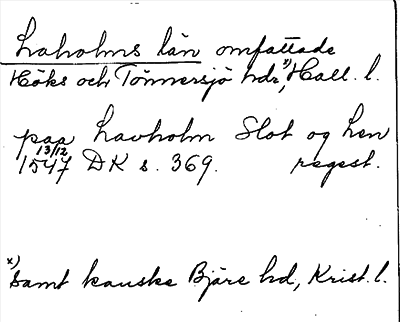 Laholms län omfattade
Höks och Tönnersjö hdr,x) Hall. l.
paa Lavholm Slot og Len
13/12
1547 DK s. 369. regest.
x) Samt kanske Bjäre hd, Krist. l.